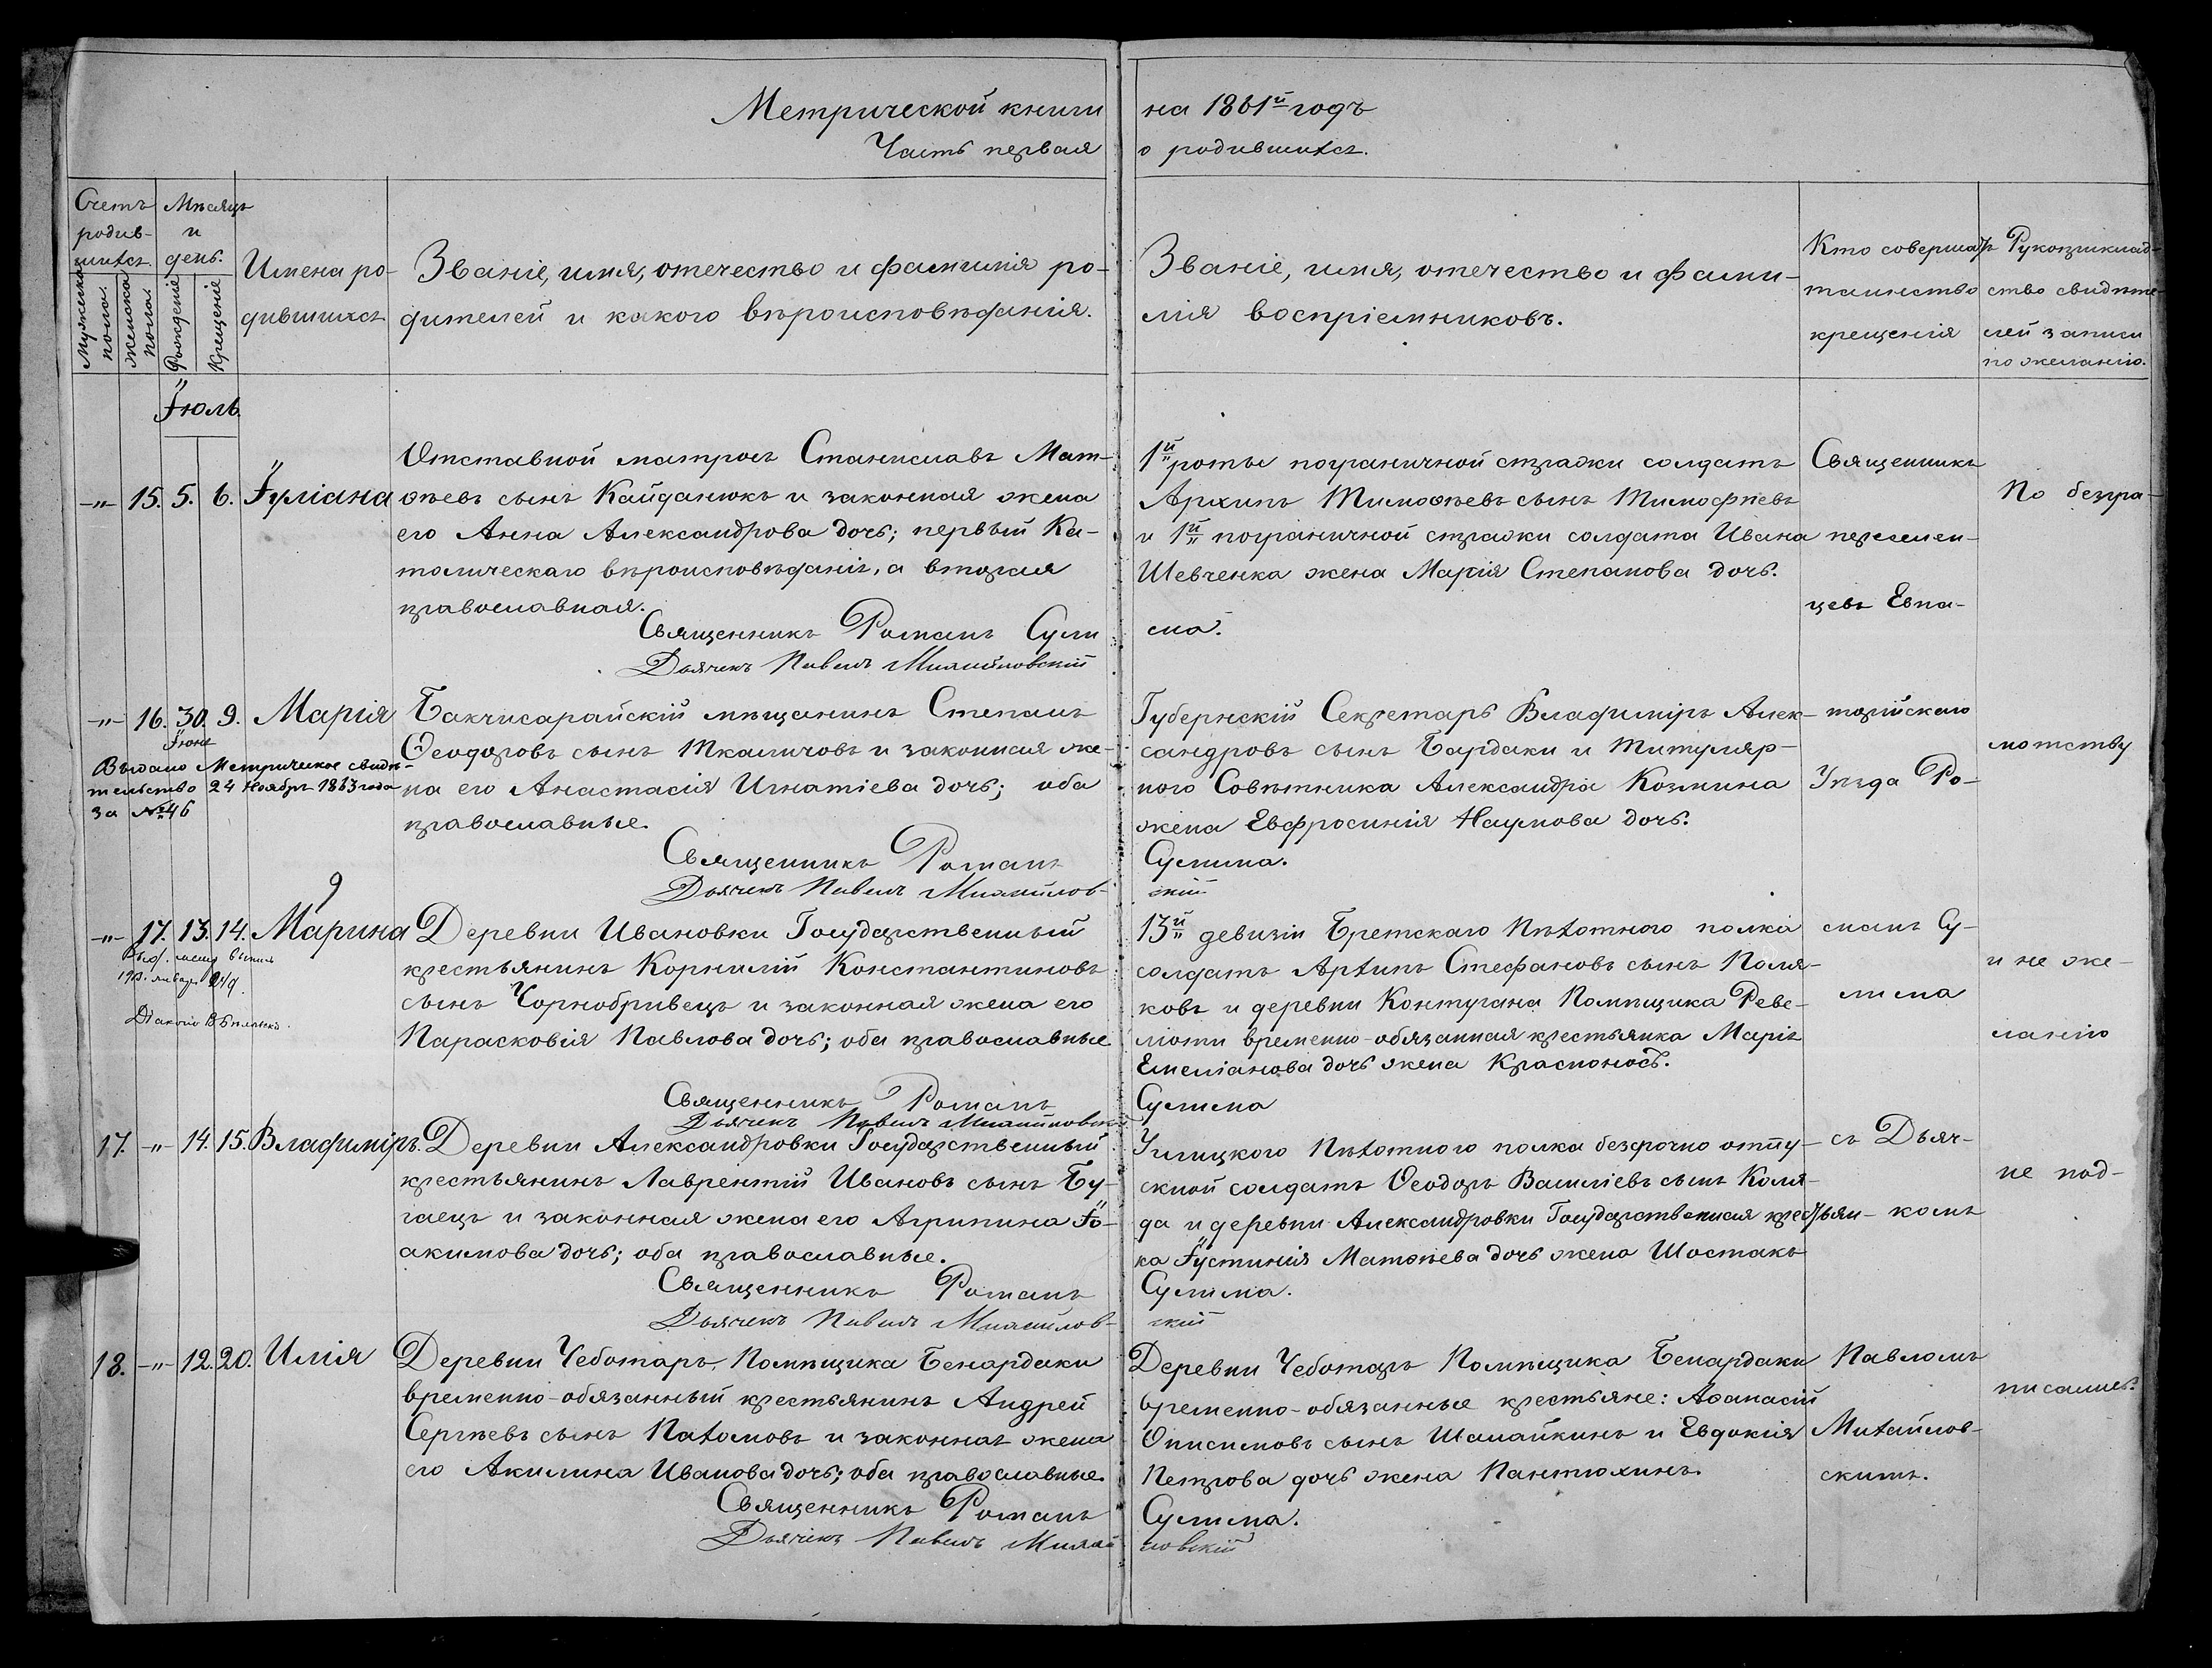 Метрической книги
на 1861й годъ
Часть первая
о родившихся.
Счетъ родив-
шихся.
Мужеска пола.
Женска пола.
Мѣсяцъ
и
день.
Рожденіе
Крещеніе
Имена ро-
дившихся
Званіе, имя, отечество и фамилія ро-
дителей и какого вѣроисповѣданія.
Званіе, имя, отечество и фами-
лія воспріемниковъ.
Кто совершалъ
таинство
крещенія
Рукоприклад-
ство свидѣте-
лей записи
по желанію.
Іюль.
-"- 15. 5. 6. Іуліана
Отставной матросъ Станиславъ Мат-
ѳѣевъ сынъ Кайданюкъ и законная жена
его Анна Александрова дочь; первый Ка-
толическаго вѣроисповѣданія, а вторая
православная.
Священникъ Романъ Сули
Дьячекъ Павелъ Михайловскій
1й роты пограничной стражи солдатъ
Архипъ Тимоѳѣевъ сынъ Тимофѣевъ
и 1й пограничной стражи солдата Ивана
Шевченка жена Марія Степанова дочь.
ма.
Священникъ
перемен-
цевъ Евпа-
По безгра-
-"- 16. 30. 9. Марія
Іюня
Выдано Метрическое свидѣ-
тельство 24 Ноября 1863 года
за № 46
Бакчисарайскій мѣщанинъ Степанъ
Ѳеодоровъ сынъ Ткаличовъ и законная же-
на его Анастасія Игнатіева дочь; оба
православные.
Священникъ Романъ
Дьячекъ Павелъ Михайлов-
Губернскій Секретарь Владиміръ Алек-
сандровъ сынъ Бардаки и Титуляр-
ного Совѣтника Александра Козмина
жена Евфросинія Наумова дочь.
Сулима.
скій
торійскаго
Уѣзда Ро-
мотству
9
-"- 17. 13. 14. Марина
Деревни Ивановки Государственный
крестьянинъ Корнилій Константиновъ
сынъ Чорнобривецъ и законная жена его
Парасковія Павлова дочь; оба православные
Священникъ Романъ
Дьячекъ Павелъ Михайловскій
13й девизіи Бретскаго Пѣхотного полка
солдатъ Архипъ Стефановъ сынъ Поля-
ковъ и деревни Контугана Помѣщика Реве-
ліоти временно-обязанная крестьянка Марія
Емеліанова дочь жена Красноносъ.
Сулима
маномъ Су-
лима
и не же-
ланію
17. -"- 14. 15. Владиміръ.
Деревни Александровки Государственный
крестьянинъ Лаврентій Ивановъ сынъ Бу-
гаецъ и законная жена его Агрипина Іо-
акимова дочь; оба православные.
Священникъ Романъ
Дьячекъ Павелъ Михайлов-
Углицкого Пѣхотного полка безсрочно отпу-
скной солдатъ Ѳеодоръ Василіевъ сынъ Коля-
да и деревни Александровки Государственная крестьян-
ка Іустинія Матѳѣева дочь жена Шостакъ
Сулима.
скій
съ Дьяч-
комъ
не под-
18. -"- 12. 20. Илія
Деревни Чеботарь, Помѣщика Бенардаки
временно-обязанный крестьянинъ Андрей
Сергѣевъ сынъ Пахомовъ и законная жена
его Акилина Иванова дочь; оба православные.
Священникъ Романъ
Дьячекъ Павелъ Михай
Деревни Чеботарь Помѣщика Бенардаки
временно-обязанные крестьяне: Аѳанасій
Онисимовъ сынъ Шалайкинъ и Евдокія
Петрова дочь жена Пантюхинъ.
Сулима.
ловскій
Павломъ
Михайлов-
скимъ.
писались.